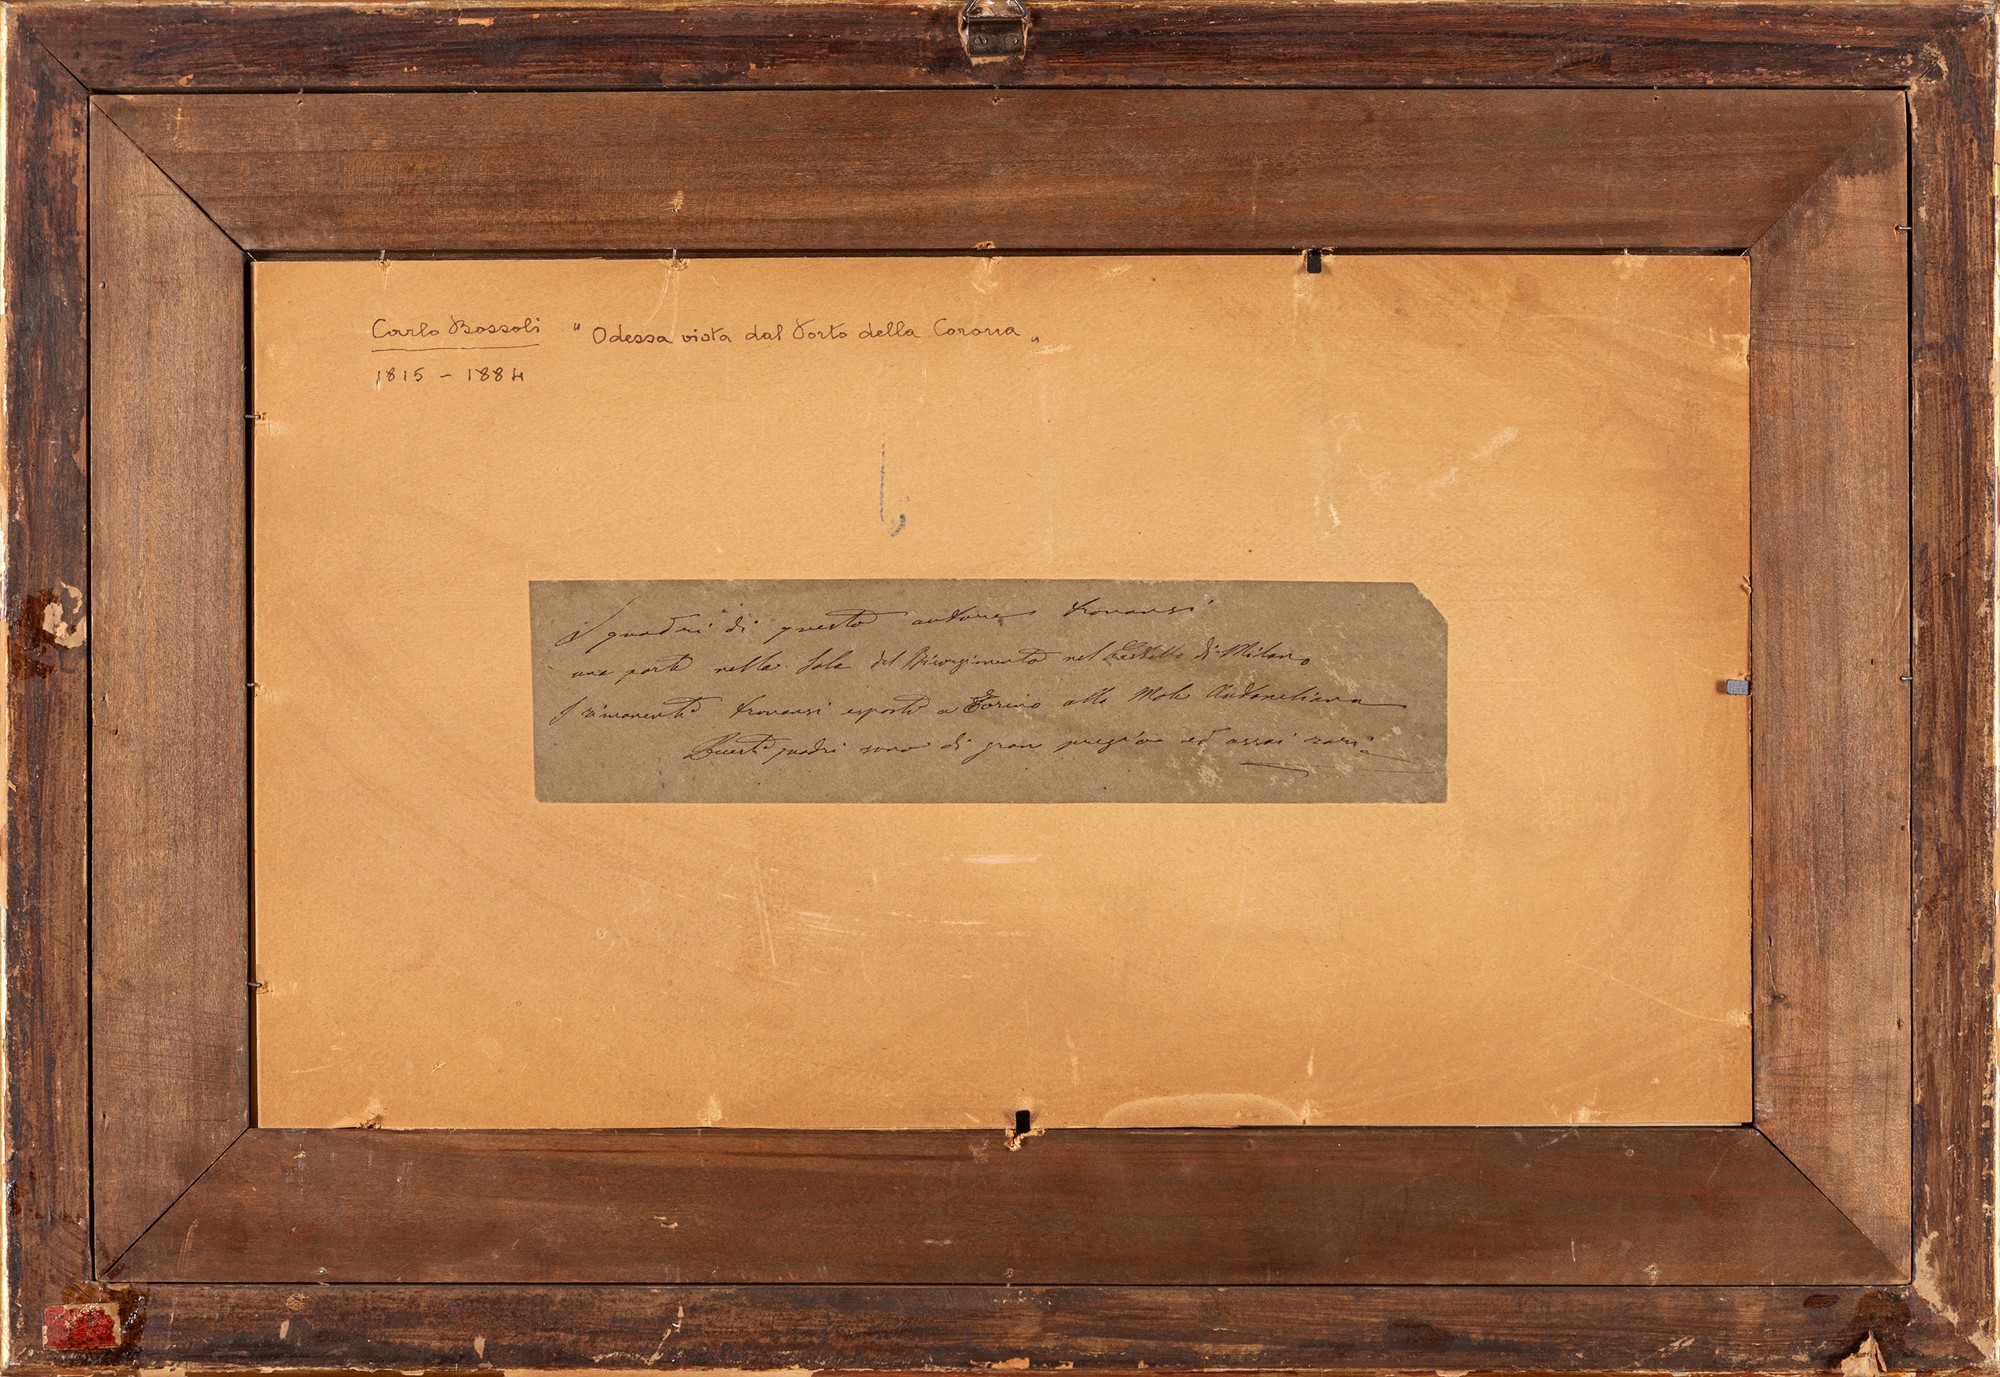 Carlo Bossoli "Odessa vista dal Porto della Corona"
1815 - 1884
I quadri di questo autore trovansi
una parte nella Sala del Risorgimento nel Castello di Milano
I rimanenti trovansi esposti a Torino alla Mole Antoneliana
Questi quadri sono di gran pregio ed assai rari